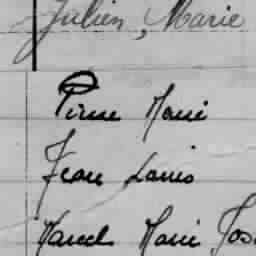 Julien, Marie
Pierre Marie
Jean Louis
Marcel Marie Jos